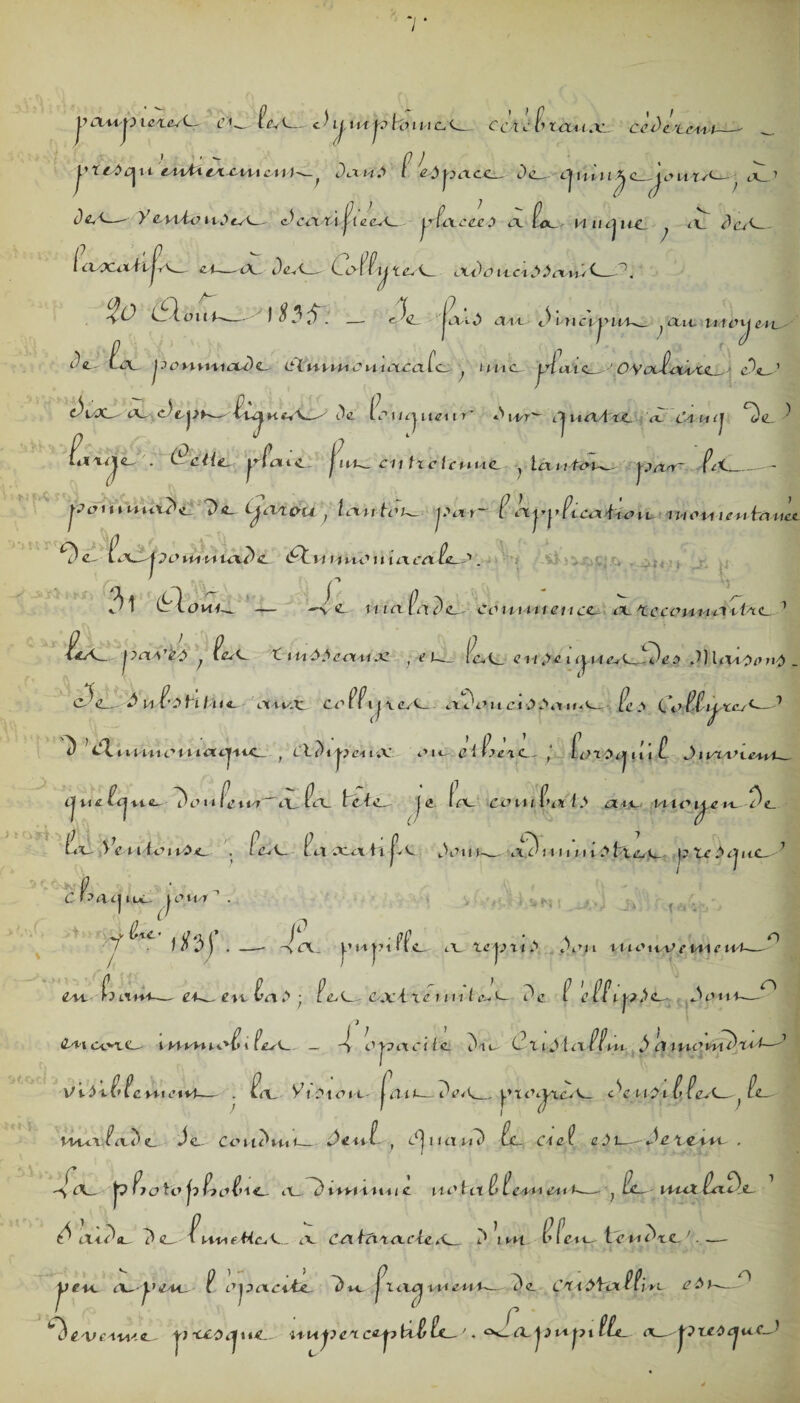 7.
paupières et les symptômes cérébraux cédèrent
presqu'entièrement, dans l'espace de quinze jours, à
des Ventouses scarifiées placées à la nuque, à des
laxatifs et à des Collyres adoucissants.
20 Août 1835. — Je fais au sinciput, au moyen
de la pommade Ammoniacale, une plaie ovalaire de
six à sept lignes de longueur sur quatre à cinq de
large. Cette plaie fut entretenue, tantôt par la
pommade de Garou, tantôt par l'application momentanée
de la pommade Ammoniacale.
31 Août — le malade commence à reconnaître
les pavés, les ruisseaux, et les enseignes des Maisons.
Je substitue aux collyres adoucissans les Collyres
d'Ammoniaque, Adipeux ou éthéré; lorsqu'il survient
quelque douleur à la tête je la combats au moyen de
la Ventouse. les laxatifs sont administrés presque
chaque jour.
7bre 1835. — La pupille a repris son mouvement
en haut et en bas; les extrémités de l'ellipse sont
encore immobiles — l'opacité du Cristallin s'amoindrit
visiblement. la Vision fait des progrès sensibles, le
malade se conduit seul, quand le ciel est serein.
La photophobie a diminué notablement, le malade
s'aide de lunettes à cataractes d'un bleu tendre. —
peu à peu l'opacité du fragment de Cristallin est
devenue presque imperceptible. La pupille a presque